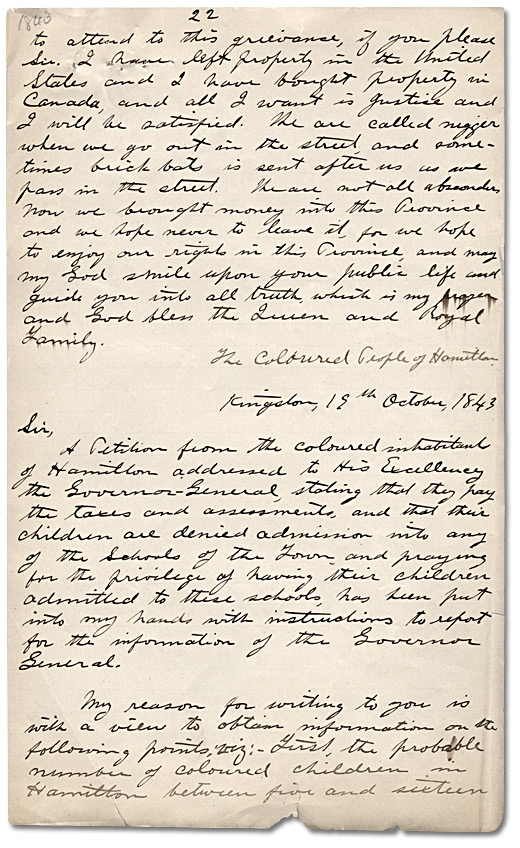 1843
22
to attend to this grievance, if you please
Sir. I have left property in the United
States and I have bought property in
Canada, and all I want is Justice and
I will be satisfied. We are called nigger
when we go out in the street, and some-
times brick bats is sent after us as we
pass in the street. We are not all absconders
Now we brought money into this Province
and we hope never to leave it, for we hope
to enjoy our rights in this Province, and may
my God smile upon your public life and
guide you into all truth, which is my prayer
and God bless the Queen and Royal
Family.
The Coloured People of Hamilton.
Kingston, 19th October, 1843
Sir,
A Petition from the coloured inhabitant
of Hamilton addressed to His Excellency
the Governor-General, stating that they pay
the taxes and assessments, and that their
children are denied admission into any
of the Schools of the Town, and praying
for the privilege of having their children
admitted to these schools, has been put
into my hands with instructions to repot
for the information of the Governor
General.
My reason for writing to you is
with a view to obtain information on the
following points, viz:- First, the probable
number of coloured children in
Hamilton between five and sixteen